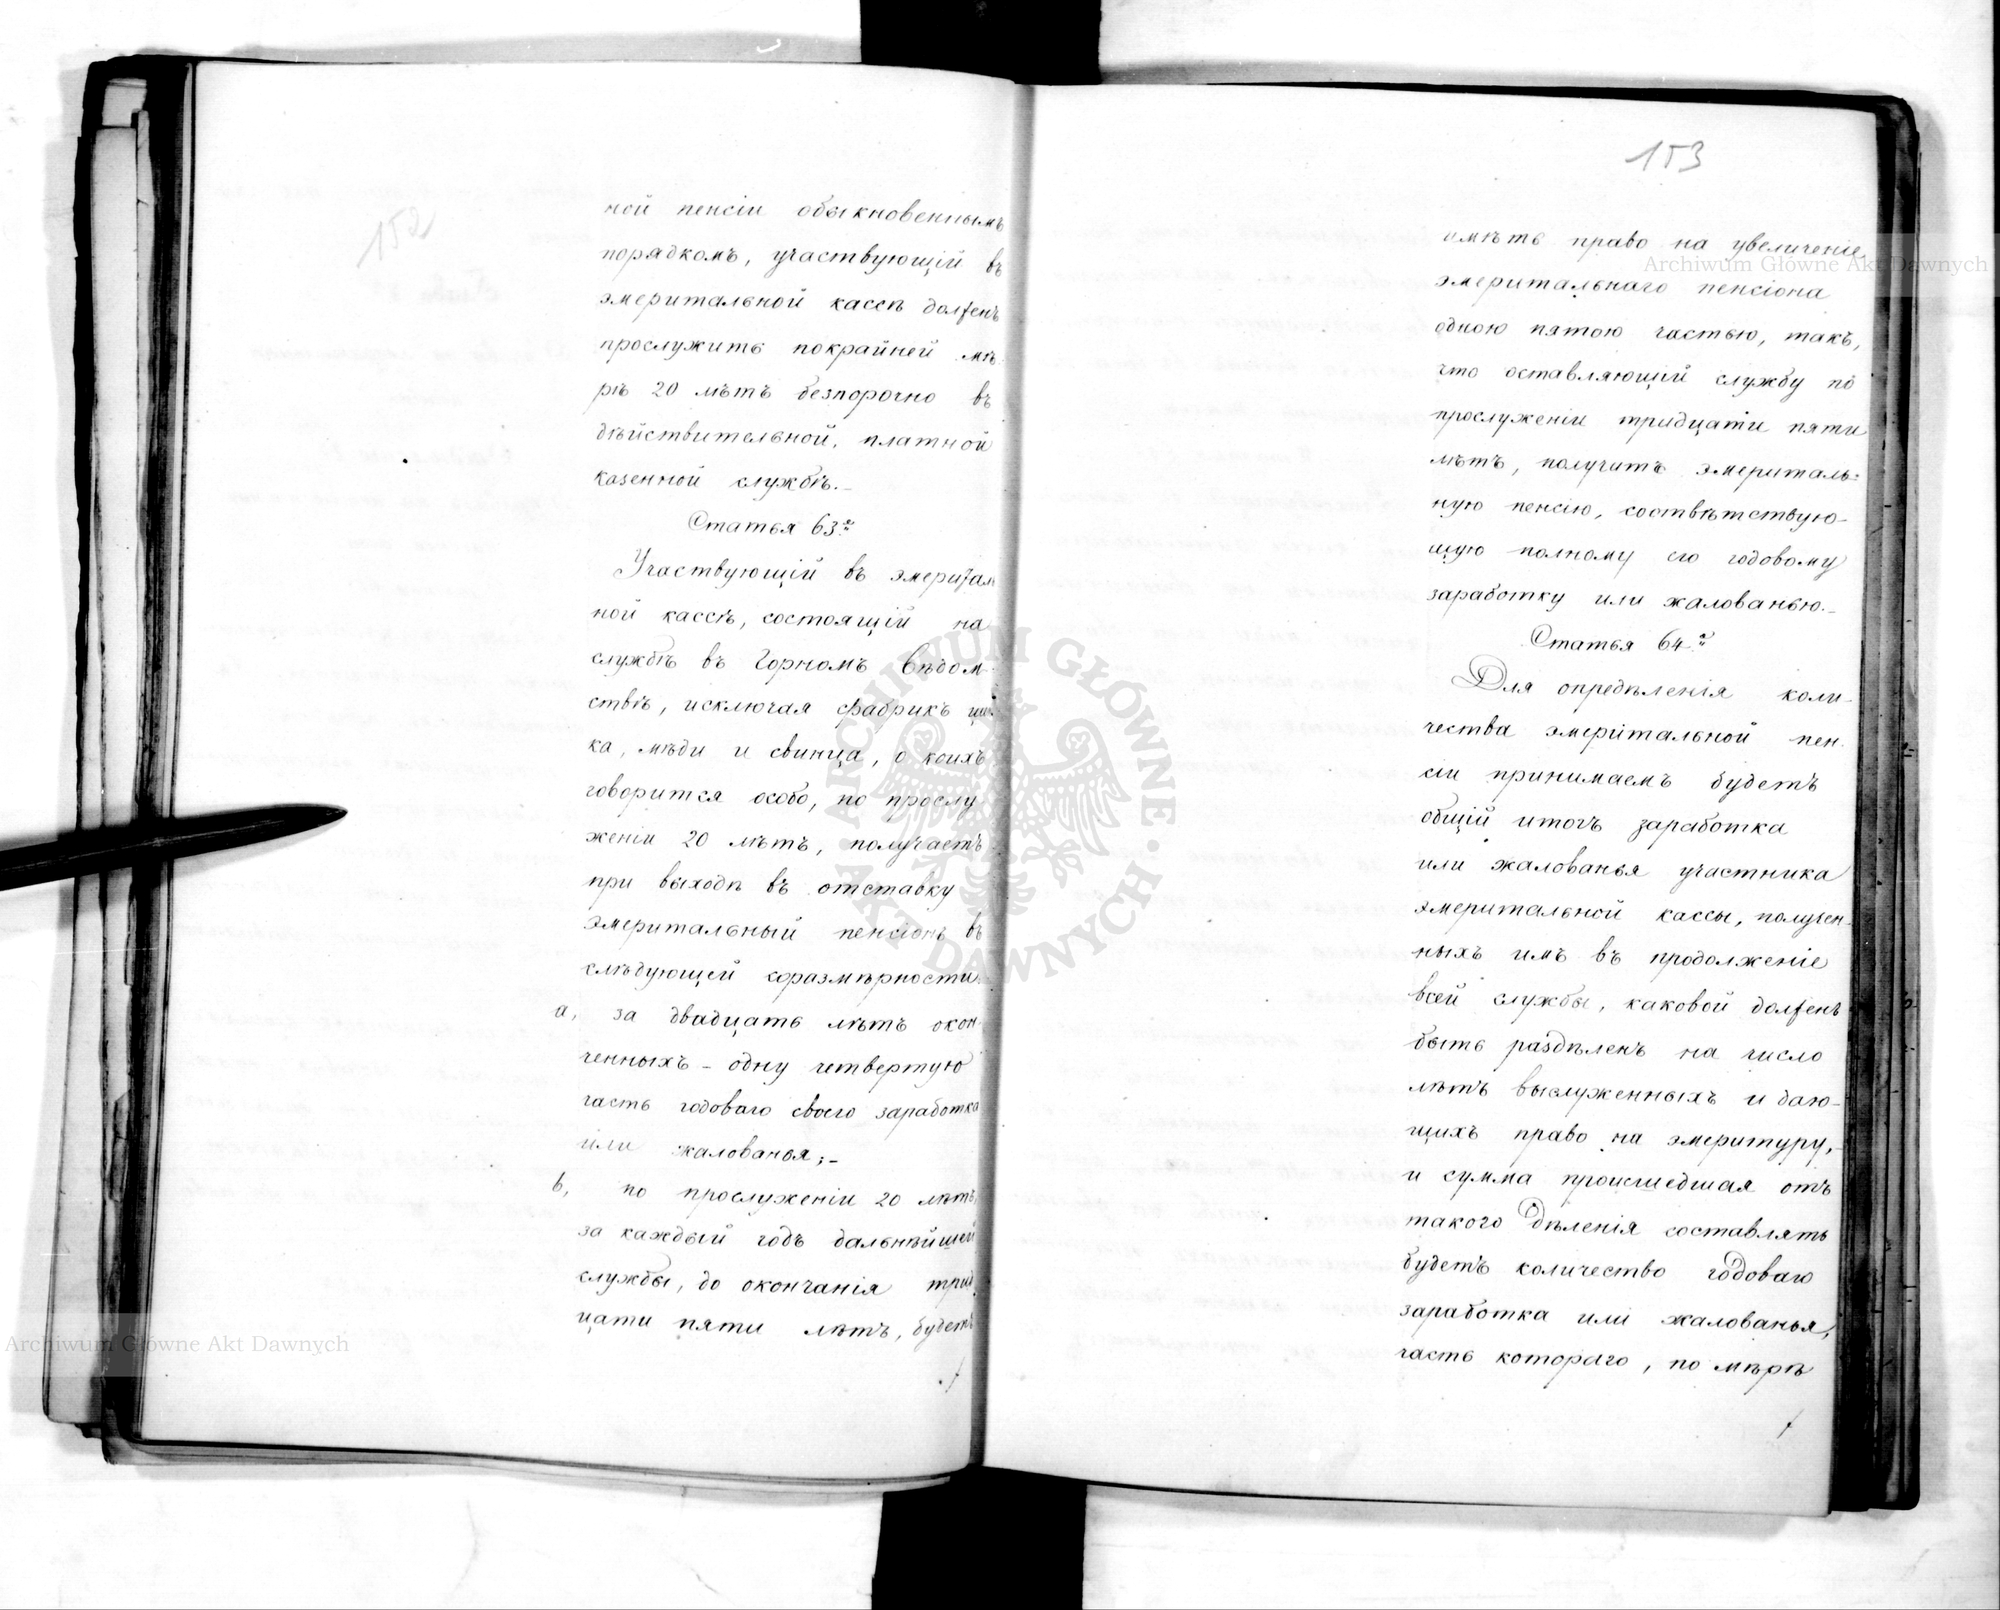 152
ной пенсіи обыкновеннымъ
порядкомъ, участвующій въ
эмеритальной кассѣ долженъ
прослужить покрайней мѣ-
рѣ 20 лѣтъ безпорочно въ
дѣйствительной, платной
казенной службѣ.-
Статья 63.я
Участвующій въ эмеритал
ной кассѣ, состоящій на
службѣ въ Горномъ Вѣдом-
ствѣ, исключая фабрикъ цин-
ка, мѣди и свинца, о коихъ
говорится особо, по прослу
женіи 20 лѣтъ, получаетъ
при выходѣ въ отставку
эмеритальный пенсіонъ въ
слѣдующей соразмѣрности
а, за двадцать лѣтъ окон-
ченныхъ - одну четвертую
часть годоваго своего заработка
или жалованья;-
b, по прослуженіи 20 лѣтъ,
за каждый годъ дальнѣйшей
службы, до окончанія трид
цати пяти лѣтъ, будетъ
153
имѣть право на увеличеніе
эмеритальнаго пенсіона
одною пятою частью, такъ,
что оставляющій службу по
прослуженіи тридцати пяти
лѣтъ, получитъ эмериталь-
ную пенсію, соотвѣтствую-
щую полному его годовому
заработку или жалованью.-
Статья 64.я
Для опредѣленія коли-
чества эмеритальной пен-
сіи принимаемъ будетъ
общій итогъ заработка
или жалованья участника
эмеритальной кассы, получен-
ныхъ имъ въ продолженіе
всей службы, каковой долженъ
быть раздѣленъ на число
лѣтъ выслуженныхъ и даю-
щихъ право на эмеритуру,-
и сумма происшедшая отъ
такого дѣленія составлять
будетъ количество годоваго
заработка или жалованья,
часть котораго, по мѣрѣ
Archiwum Główne Akt Dawnych
Archiwum Główne Akt Dawnych
ARCHIWUM GŁÓWNE AKT DAWNYCH